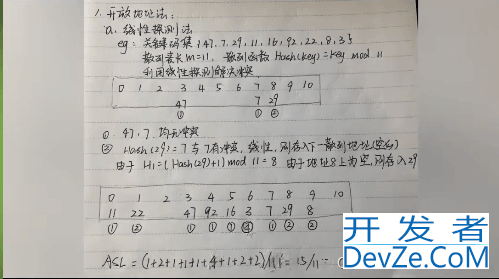 1. 开放地址法:
a. 线性探测法
eg: 关键码集{47, 7, 29, 11, 16, 92, 22, 8, 3}
散列表长m=11, 散列函数 Hash(key)=key mod 11
利用线性探测解决冲突.
0 1 2 3 4 5 6 7 8 9 10
47 7 29
① ① ②
① 47, 7. 均无冲突
② Hash(29)=7 与7有冲突, 线性, 则存入下一散列地址(空)
由于 H1=(Hash(29)+1) mod 11=8 由于地址8上为空, 则存入29
0 1 2 3 4 5 6 7 8 9 10
11 22 47 92 16 3 7 29 8
① ② ① ① ① ④ ① ② ②
ASL=(1+2+1+1+1+4+1+2+2)/ = 15/11
开发者
DevZe.CoM